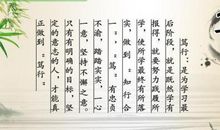 篤行：是为学习最
后阶段，就是既然学有
报得，就要努力践履所
学，使所学最终有所落
实，做到“知行合
一”。“篤”有忠贞
不渝，踏踏实实，一心
一意，坚持不懈之意。
只有有明确的目标，坚
定的意志的人，才能真
正做到“篤行